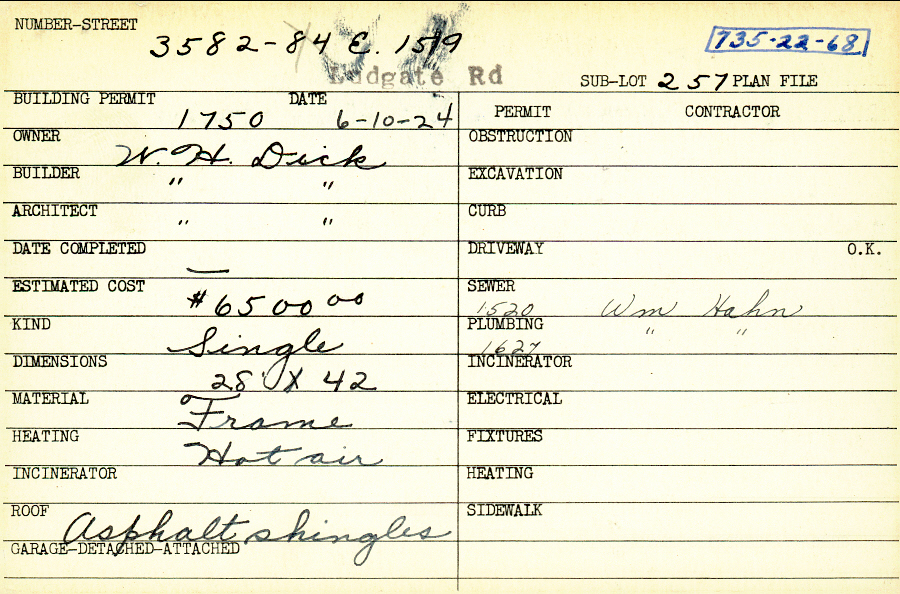 NUMBER-STREET
3582-84 E. 1519
735-22-68
Ludgate Rd
SUB-LOT 257 PLAN FILE
BUILDING PERMIT DATE
1750 6-10-24
PERMIT CONTRACTOR
OWNER
W. H. Dick
OBSTRUCTION
BUILDER
" "
EXCAVATION
ARCHITECT
" "
CURB
DATE COMPLETED
—
DRIVEWAY O.K.
ESTIMATED COST
#6500 00
SEWER
1520 Wm Hahn
KIND
Single
PLUMBING " "
1627
DIMENSIONS
28' X 42
INCINERATOR
MATERIAL
Frame
ELECTRICAL
HEATING
Hot air
FIXTURES
INCINERATOR
HEATING
ROOF
Asphalt shingles
SIDEWALK
GARAGE-DETACHED-ATTACHED